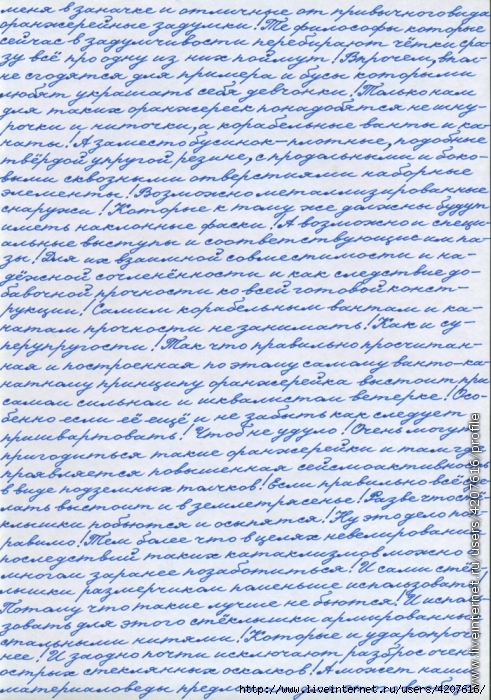 меня в заначке и отличные от привычного вида
оранжерейные задумки! Те философы которые
сейчас в задумчивости перебирают чётки сра-
зу всё про одну из них поймут! Впрочем, впол-
не сгодятся для примера и бусы которыми
любят украшать себя девчонки! Только нам
для таких оранжереек понадобятся не шну-
рочки и ниточки, и корабельные ванты и ка-
наты! А заместо бусинок – плотные, подобные
твёрдой упругой резине, с продольными и боко-
выми сквозными отверстиями наборные
элементы! Возможно металлизированные
снаружи! Которые к тому же должны будут
иметь наклонные фаски! А возможно и специ-
альные выступы и соответствующие им па-
зы! Для их взаимной совместимости и на-
дёжной сочленённости и как следствие до-
бавочной прочности ко всей готовой конст-
рукции! Самим корабельным вантам и ка-
натам прочности не занимать! Как и су-
перупругости! Так что правильно просчитан-
ная и построенная по этому самому ванто-ка-
натному принципу оранжерейка выстоит при
самом сильном и шквалистом ветерке! Осо-
бенно если её ещё и не забыть как следует
пришвартовать! Чтоб не удуло! Очень могут
пригодиться такие оранжерейки и там где
проявляется повышенная сейсмоактивность
в виде подземных толчков! Если правильно всё сде-
лать выстоит и в землетрясенье! Разве что стё-
клышки побьются и осыпятся! Ну это дело поп-
равимо! Тем более что в целях невелирования
последствий таких катаклизмов можно о
многом заранее позаботиться! И сами стё-
клышки размерчиком поменьше использовать!
Потому что такие лучше не бьются! И исполь-
зовать для этого стёклышки армированные
стальными нитями! Которые и ударопроч-
нее! И заодно почти исключают разброс очень
острых стеклянных осколков! А может наши
материаловеды предложат
www.liveinternet.ru/users/4207616/profile
http://www.liveinternet.ru/users/4207616/